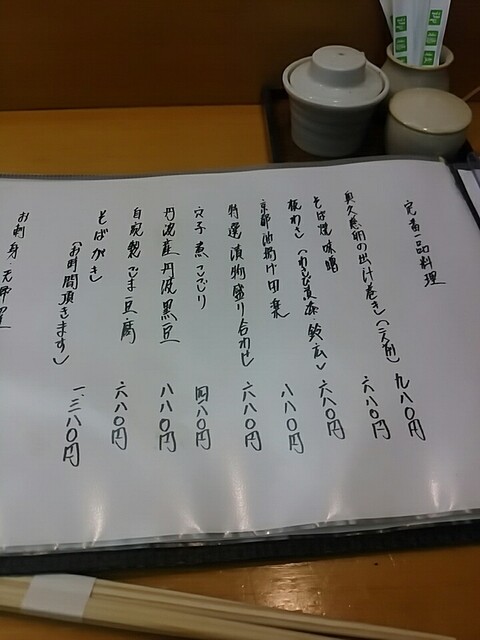 定番一品料理
奥久慈卵の出汁巻き(二人前) 九八〇円
そば焼味噌 六八〇円
板わさ(わさび漬添 鈴広) 六八〇円
京都油揚げ田楽 八八〇円
特選漬物盛り合わせ 六八〇円
穴子煮こごり 四八〇円
丹波産丹波黒豆 八八〇円
自家製ごま豆腐 六八〇円
そばがき
(お時間頂きます) 一、三八〇円
お刺身